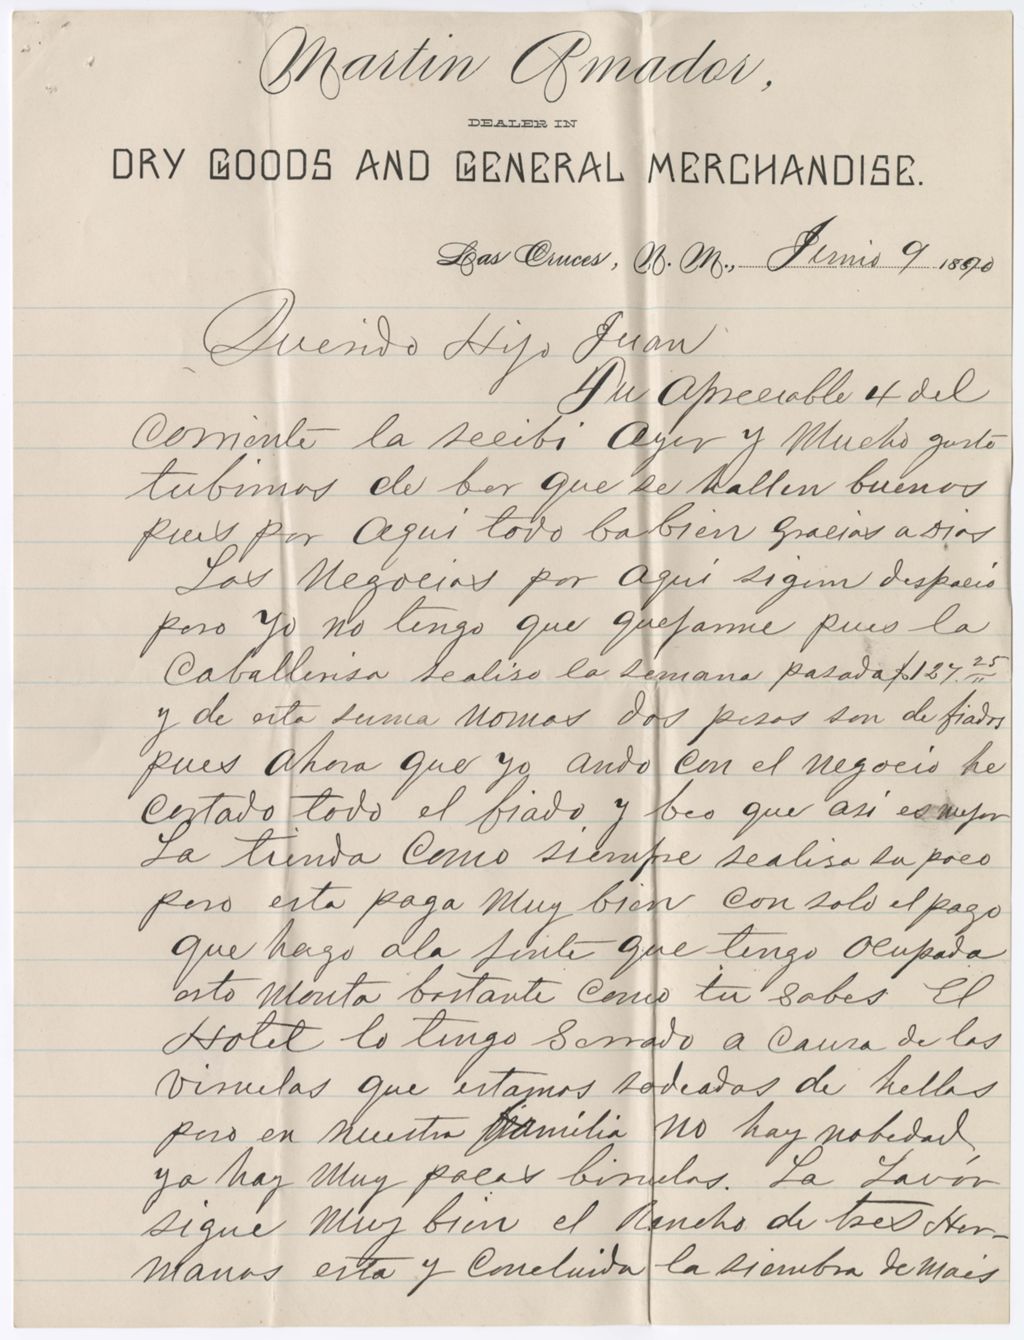 Martin Amador,
DEALER IN
DRY GOODS AND GENERAL MERCHANDISE.
Las Cruces, N. M., Junio 9 1890
Querido Hijo Juan
Tu apreciable 4 del
Corriente la recibi Ayer y Mucho gusto
tubimos de ber que se hallen buenos
pues por aqui todo ba bien gracias a Dios
Los Negocios por aqui sigen despacio
pero Yo no tengo que quejarme pues la
Caballerisa realiso la semana pasada $127.25
y de esta suma nomas dos pesos son de fiados
pues ahora que yo ando con el negocio he
cortado todo el fiado y beo que asi es mejor
La tienda Como siempre realisa su poco
pero esta paga Muy bien con solo el pago
que hago a la jente que tengo Ocupada
esto Monta bastante como tu sabes El
Hotel lo tengo Serrado a causa de las
viruelas que estamos rodeados de hellas
pero en nuestra familia no hay nobedad
ya hay Muy pocas biruelas. La Lavór
sigue Muy bien el Rancho de tres Her-
manos esta y Concluida la siembra de Mais